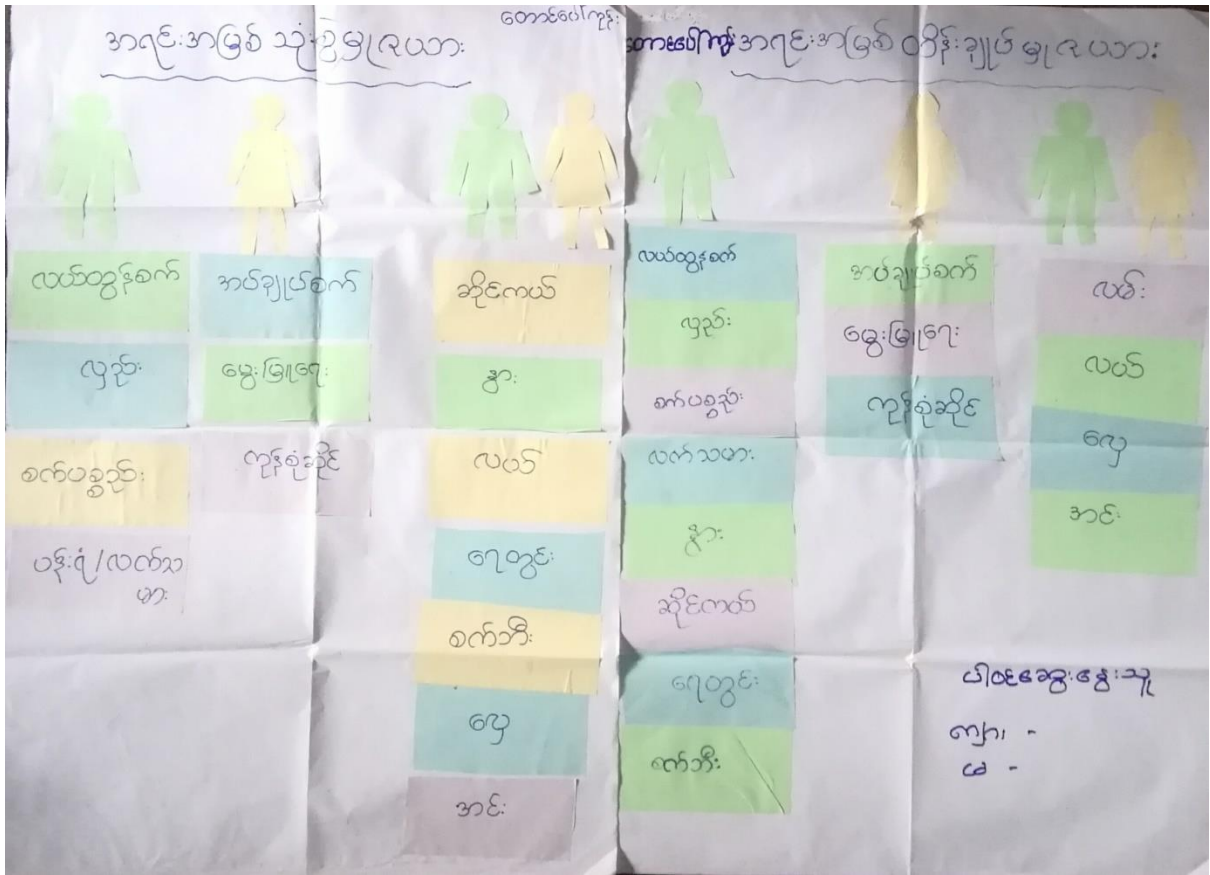 တောင်ပေါ်ကုန်း
အရင်းအမြစ် သုံးစွဲမှုဇယား
လယ်ထွန်စက်
လှည်း
စက်ပစ္စည်း
ပန်းရံ/လက်သ
မား
အပ်ချုပ်စက်
မွေးမြူရေး
ကုန်စုံဆိုင်
ဆိုင်ကယ်
နွား
လယ်
ရေတွင်း
စက်ဘီး
လှေ
အင်း
တောင်ပေါ်ကုန်း အရင်းအမြစ် ထိန်းချုပ်မှုဇယား
လယ်ထွန်စက်
လှည်း
စက်ပစ္စည်း
လက်သမား
နွား
ဆိုင်ကယ်
ရေတွင်း
စက်ဘီး
အပ်ချုပ်စက်
မွေးမြူရေး
ကုန်စုံဆိုင်
လမ်း
လယ်
လှေ
အင်း
ပါဝင်ဆွေးနွေးသူ
ကျား -
မ -